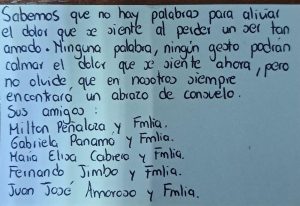 Sabemos que no hay palabras para aliviar
el dolor que se siente al perder un ser tan
amado. Ninguna palabra, ningún gesto podrán
calmar el dolor que se siente ahora, pero
no olvide que en nosotros siempre
encontrará un abrazo de consuelo.
Sus amigos:
Milton Peñaloza y Fmlia.
Gabriela Panamo y Fmlia.
Maria Elisa Cabrera y Fmlia.
Fernando Jimbo y Fmlia.
Juan José Amoroso y Fmlia.